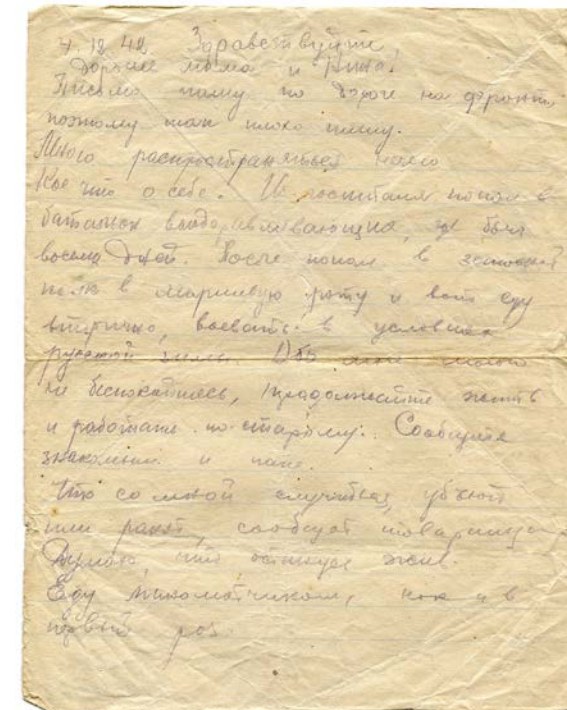 4.12.42 Здравствуйте,
Дорогие мама и Нина!
Письмо пишу по дороге на фронт
поэтому так плохо пишу.
Много распространяться нечего
Кое что о себе. Из госпиталя попал в
батальон выздоравливающих, где был
восемь дней. После попал в запасной
полк в маршевую роту и вот еду
вторично, воевать в условиях
русской зимы. Обо мне много
не беспокойтесь, продолжайте жить
и работать по старому. Сообщите
знакомым и папе.
Что со мной случиться, убьют
или ранят, сообщат товарищи
Думаю, что останусь жив.
Еду минометчиком, как и в
первый раз